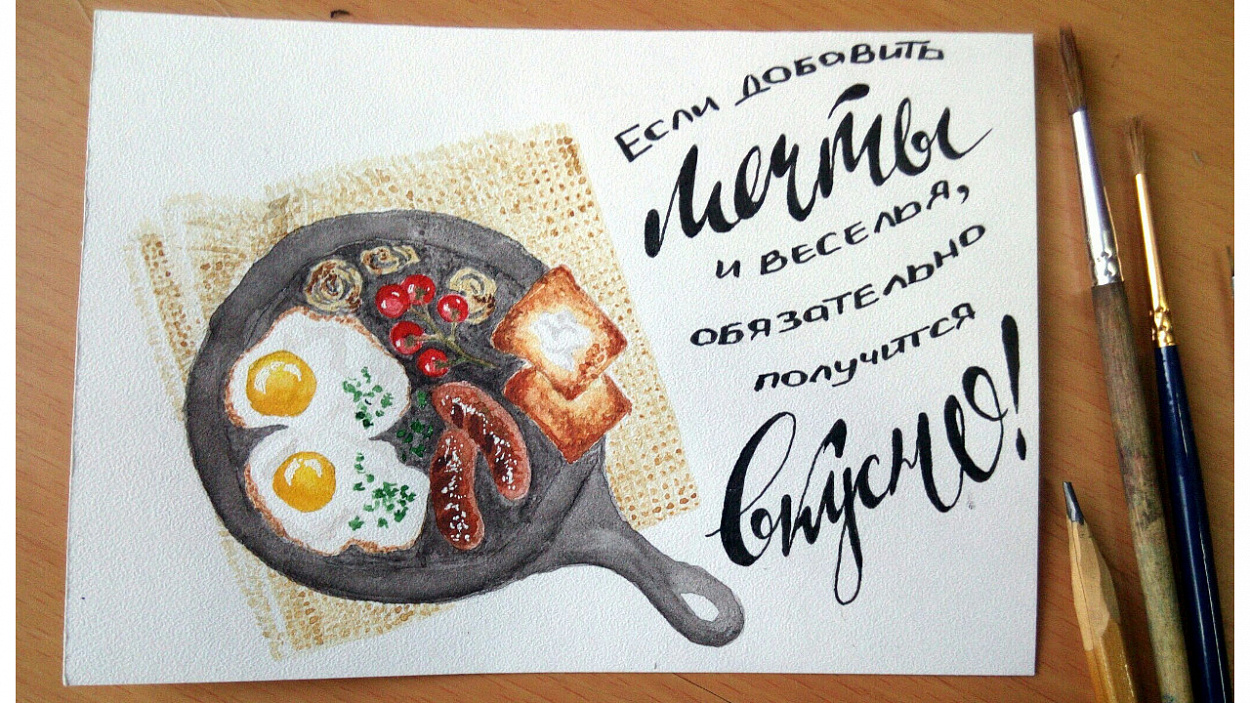 Если добавить
мечты
и веселья,
обязательно
получится
вкусно!